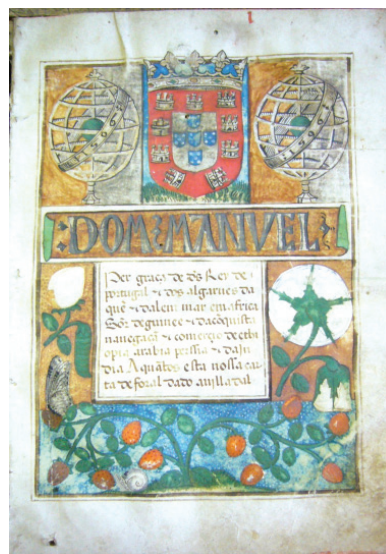 DOM: MANVEL
Per graça de d̃s Rey de
portugal ⁊ dos algarues da
quẽ ⁊ dalem mar em africa
Sõr de guinee ⁊ da cõquista
nauegaçã ⁊ comerçio de ethi
opia arabia perssia ⁊ da jn
dia A quãtos esta nossa car
ta de foral dado a uilla dal